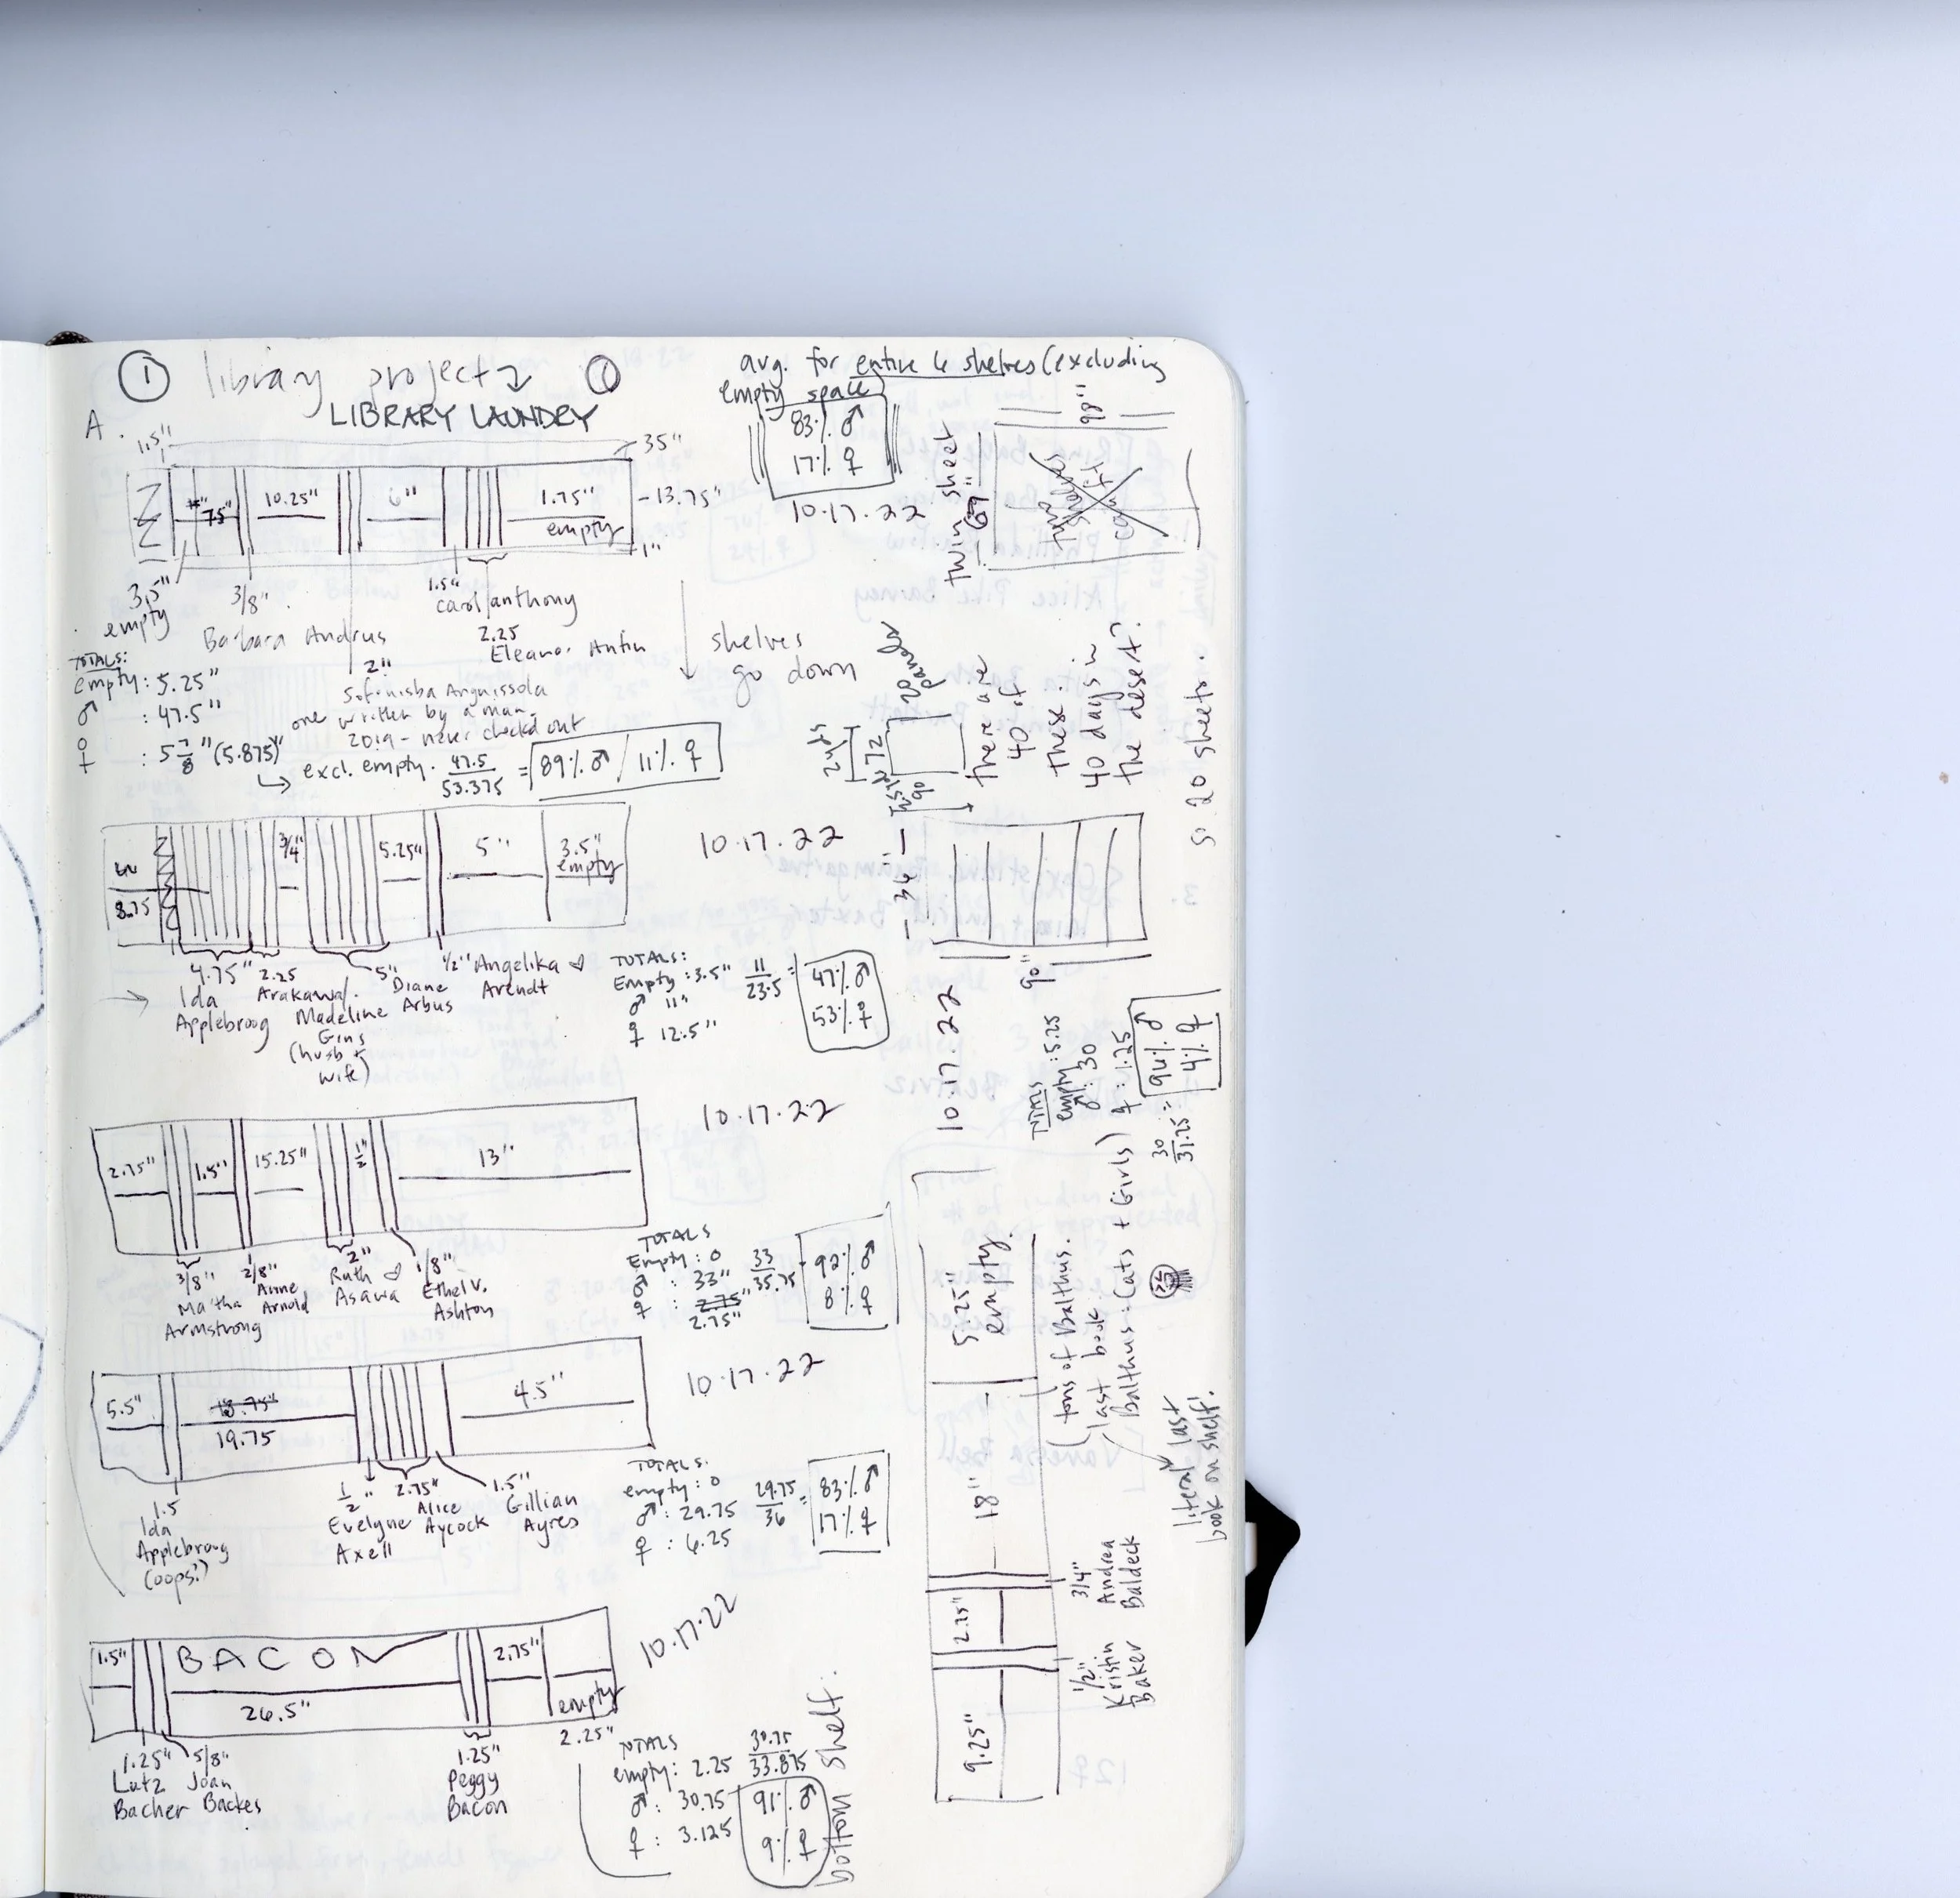 ① library project ①
LIBRARY LAUNDRY
avg. for entire 6 shelves (excluding
empty space)
83% ♂
17% ♀
10.17.22
A.
1.5"
35"
75"
10.25"
6"
1.75"
empty
-13.75"
1"
3.5"
empty
3/8"
Barbara Andrus
2"
Sofonisba Anguissola
one written by a man.
2019 - never checked out
1.5"
Carol Anthony
2.25
Eleanor Antin
TOTALS:
empty: 5.25"
♂ : 47.5"
♀ : 5 7/8" (5.875)"
↳ excl. empty. 47.5/53.375 = 89% ♂ / 11% ♀
shelves
go down
8.75
3/4"
5.25"
5"
3.5"
empty
10.17.22
4.75"
Ida
Applebroog
2.25
Arakawa/
Madeline
Gins
(husb +
wife)
5"
Diane
Arbus
1/2" Angelika ♡
Arendt
TOTALS:
Empty: 3.5"
♂ 11"
♀ 12.5"
11/23.5 =
47% ♂
53% ♀
2.75"
1.5"
15.25"
1/2"
13"
10.17.22
3/8"
Martha
Armstrong
2/8"
Anne
Arnold
2"
Ruth ♡
Asawa
1/8"
Ethel V.
Ashton
TOTALS
Empty: 0
♂ : 33"
♀ : 2.75"
2.75"
33/35.75
92% ♂
8% ♀
5.5"
18.75"
19.75
4.5"
10.17.22
1.5
Ida
Applebroog
(oops?)
1/2"
Evelyne
Axell
2.75"
Alice
Aycock
1.5"
Gillian
Ayres
TOTALS:
empty: 0
♂: 29.75
♀ : 6.25
29.75/36 =
83% ♂
17% ♀
1.5"
BACON
26.5"
2.75"
empty
2.25"
10.17.22
1.25"
Lutz
Bacher
5/8"
Joan
Backes
1.25"
Peggy
Bacon
TOTALS
empty: 2.25
♂: 30.75
♀ : 3.125
30.75/33.875
91% ♂
9% ♀
twin sheet
69"
98"
two
shelves
can fit
20 panels
72
90
there are
40 of
these.
40 days in
the desert?
so 20 sheets.
- 34" -
90"
10.17.22
TOTALS
empty: 5.25
♂: 30
♀ : 1.25
30/31.25 =
96% ♂
4% ♀
bottom shelf:
9.25"
2.25"
- 18" -
5.25"
empty.
1/2"
Kristin
Baker
3/4"
Andrea
Baldeck
(tons of Balthus.
last book:
Balthus: Cats + Girls)
literal last
book on shelf!